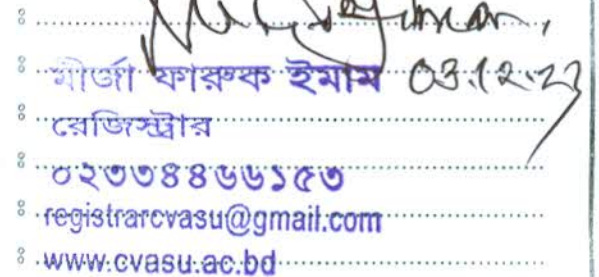 মীর্জা ফারুক ইমাম 03.12.23
রেজিস্ট্রার
০২৩৩৪৪৬৬১৫৩
registrarcvasu@gmail.com
www.cvasu.ac.bd